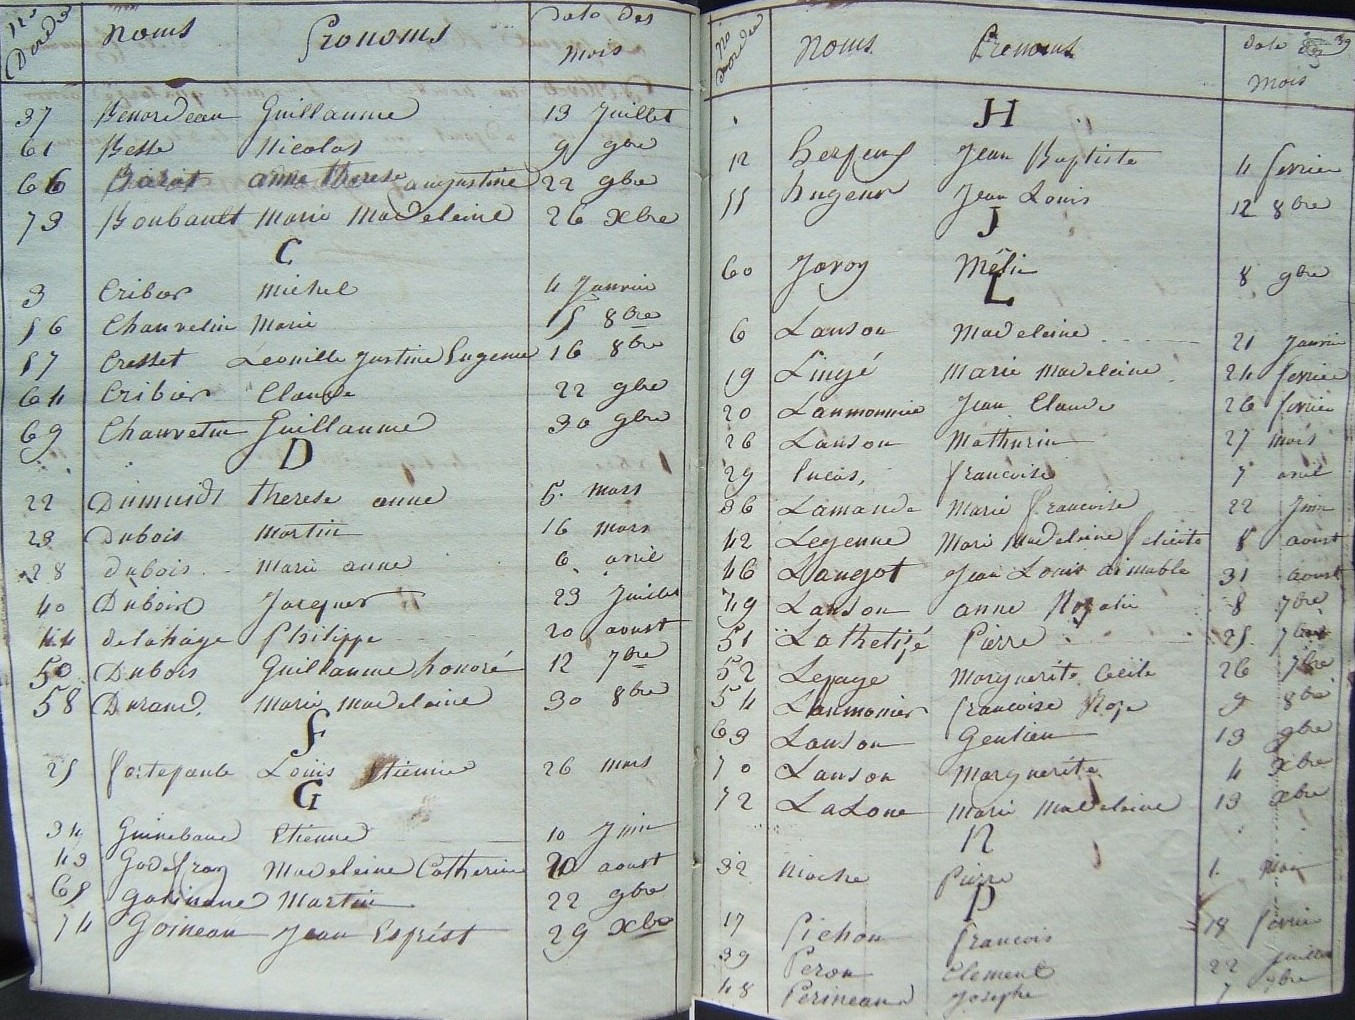 No Dordre Noms Prenoms Date des mois
37 Benordeau Guillaume 13 Juillet
61 Besse Nicolas 9 9bre
66 Barat anne therese augustine 22 9bre
73 Boubault Marie Madeleine 26 Xbre
C
3 Cribier Michel 4 Janvier
56 Chauvelin Marie 5 8bre
57 Cresset Leonille Justine Eugenie 16 8bre
64 Cribier Claude 22 9bre
69 Chauvelin Guillaume 30 9bre
D
22 Dumuids therese anne 5 mars
23 Dubois Martin 16 mars
28 dubois Marie anne 6 avril
40 Dubois Jacques 23 Juillet
44 delahaye Philippe 20 aoust
50 Dubois Guillaume honoré 12 7bre
58 Durand Marie Madeleine 30 8bre
F
25 Louis Etienne 26 mars
G
34 Guinebaud Etienne 10 Juin
43 Godefroy Madeleine Catherine 20 aoust
65 Martin 22 9bre
74 Goineau Jean Esprist 29 Xbre
No Dordre Noms Prenoms date des mois
H
12 Jean Baptiste 4 fevrier
55 hugeur Jean Louis 12 8bre
J
60 Javoy 8 9bre
L
6 Lanson Madeleine 21 Janvier
19 Lingé Marie Madeleine 24 fevrier
20 Laumonnier Jean Claude 26 fevrier
26 Lanson Mathurin 27 mars
29 Lucas francoise 7 avril
36 Lamande Marie francoise 22 Juin
42 Lejeune Marie Madeleine felicité 8 aoust
46 Langot Jean Louis aimable 31 aoust
49 Lanson anne Rozalie 8 7bre
51 Pierre 25 7bre
52 Lepage Marguerite Cecile 26 7bre
54 Laumonier francoise Roze 9 8bre
63 Lanson Gentien 19 9bre
70 Lanson Marguerite 4 Xbre
72 LaLone Marie Madeleine 13 Xbre
N
32 Pierre 1
P
17 Pichon francois 18 fevrier
39 Peron Clement 22 Juillet
48 Perineaud Josephe 7 7bre